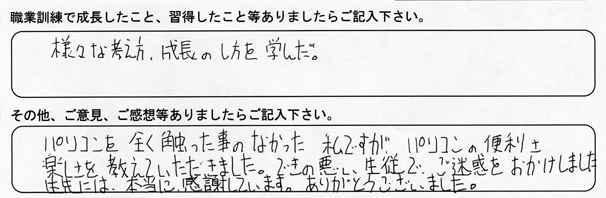 職業訓練で成長したこと、習得したこと等ありましたらご記入下さい。
様々な考え方、成長のし方を学んだ。
その他、ご意見、ご感想等ありましたらご記入下さい。
パソコンを全く触った事のなかった私ですが、パソコンの便利さ
楽しさを教えていただきました。できの悪い生徒で、ご迷惑をおかけしました
先生には、本当に感謝しています。ありがとうございました。